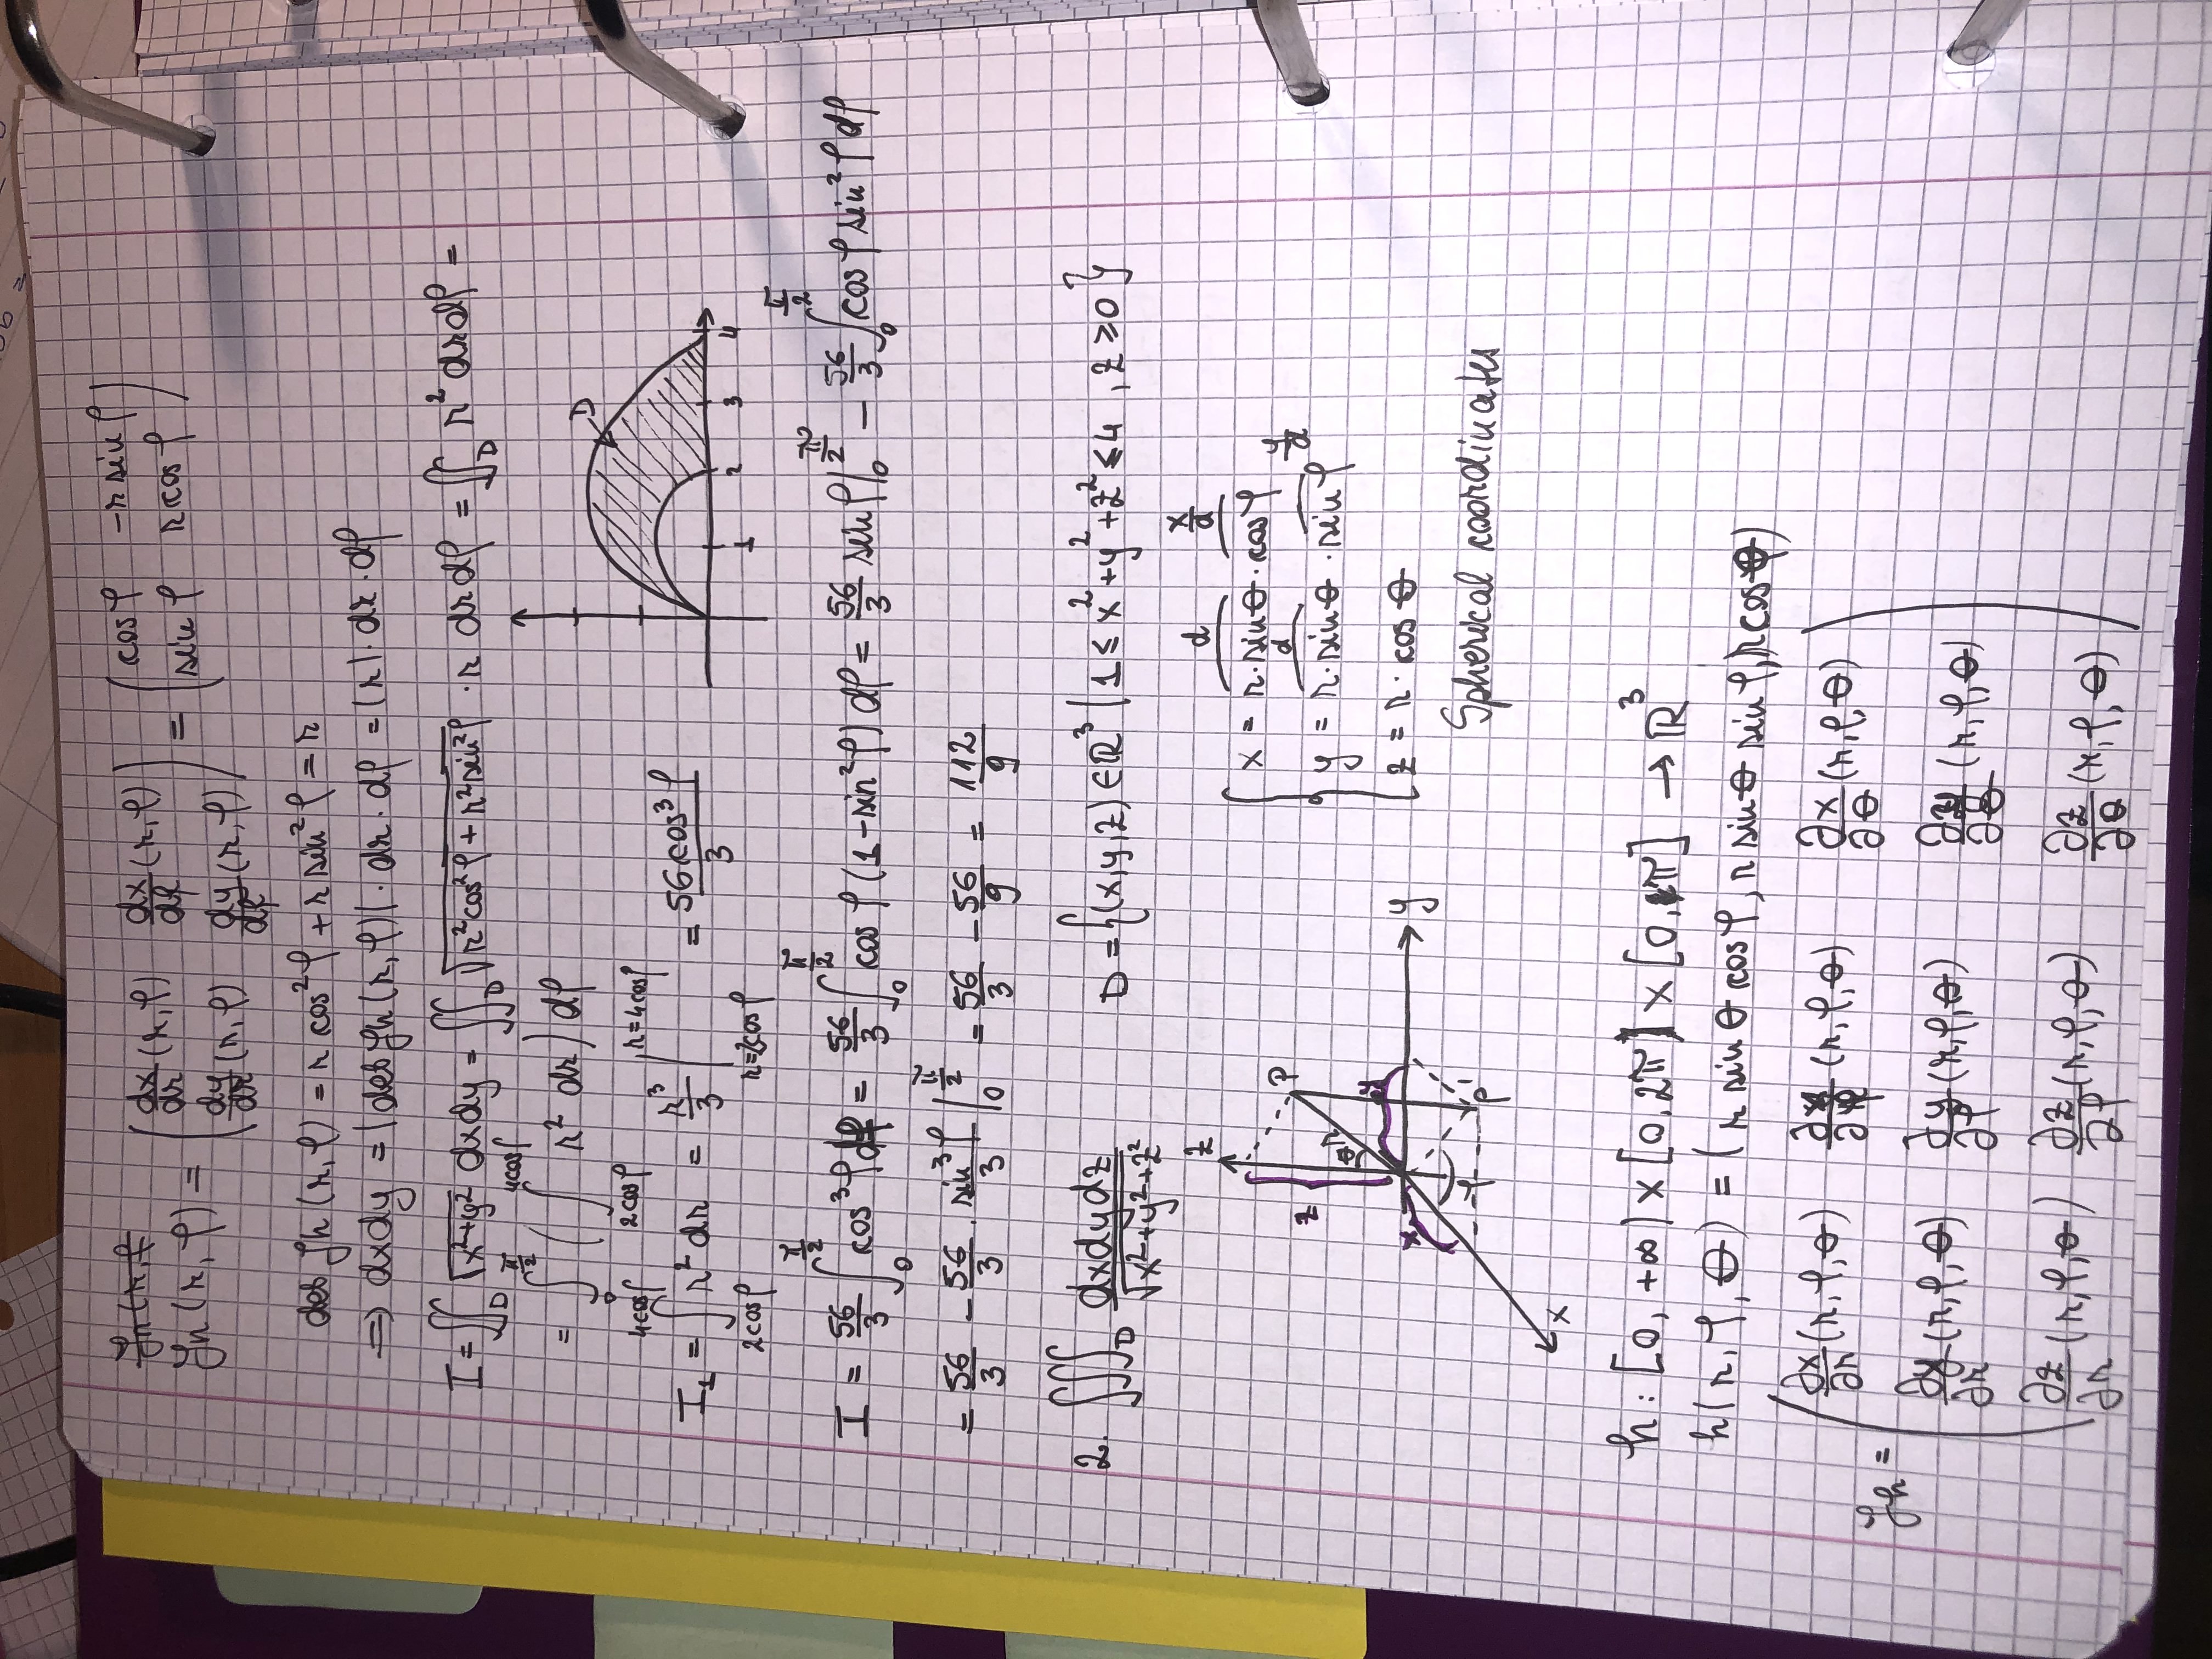 Jh(r,φ
Jh(r,φ) = ( dx/dr (r,φ) dx/dφ (r,φ) dy/dr (r,φ) dy/dφ (r,φ) ) = ( cosφ -r sinφ sinφ r cosφ )
det Jh(r,φ) = r cos²φ + r sin²φ = r
⇒ dxdy = |det Jh(r,φ)| · dr · dφ = |r| · dr · dφ
I = ∬_D √(x²+y²) dxdy = ∬_D √(r²cos²φ + r²sin²φ) · r dr dφ = ∬_D r² dr dφ =
= ∫_0^{π/2} ( ∫_{2cosφ}^{4cosφ} r² dr ) dφ
D
1 2 3 4
I₁ = ∫_{2cosφ}^{4cosφ} r² dr = r³/3 |_{r=2cosφ}^{r=4cosφ} = 56cos³φ/3
I = 56/3 ∫_0^{π/2} cos³φ dφ = 56/3 ∫_0^{π/2} cosφ (1-sin²φ) dφ = 56/3 sinφ |_0^{π/2} - 56/3 ∫_0^{π/2} cosφ sin²φ dφ
= 56/3 - 56/3 · sin³φ/3 |_0^{π/2} = 56/3 - 56/9 = 112/9
2. ∭_D dxdydz/√(x²+y²+z²) D = {(x,y,z) ∈ ℝ³ | 1 ≤ x²+y²+z² ≤ 4 , z ≥ 0}
z
P
z
θ r
y
x
y
φ
P'
x
d x/d
x = r·sinθ · cosφ
d y/d
y = r·sinθ · sinφ
z = r · cosθ
Spherical coordinates
h : [0, +∞) × [0, 2π] × [0, π] → ℝ³
h(r, φ, θ) = (r sinθ cosφ, r sinθ sinφ, r cosθ)
Jh = ( ∂x/∂r (r,φ,θ) ∂x/∂φ (r,φ,θ) ∂x/∂θ (r,φ,θ)
∂y/∂r (r,φ,θ) ∂y/∂φ (r,φ,θ) ∂y/∂θ (r,φ,θ)
∂z/∂r (r,φ,θ) ∂z/∂φ (r,φ,θ) ∂z/∂θ (r,φ,θ) )